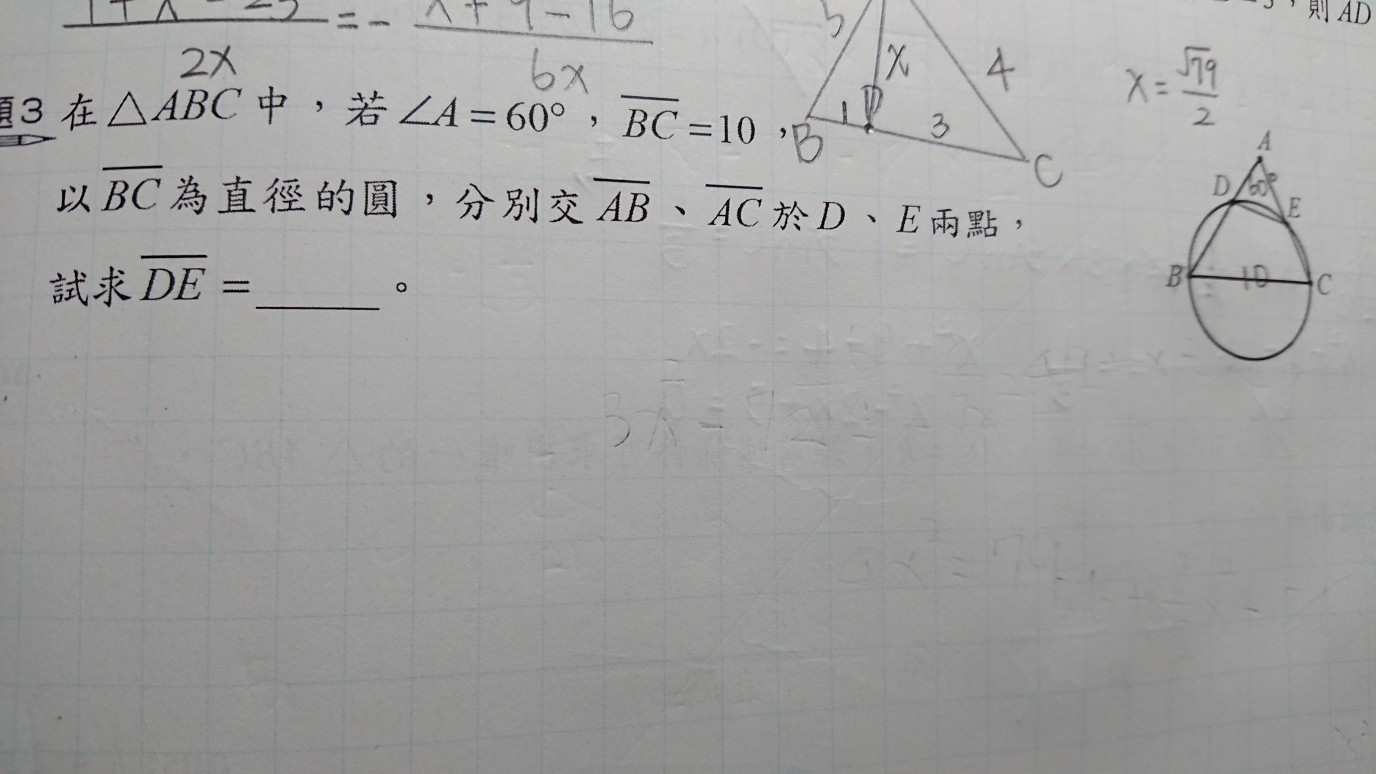 = -
2x 6x
5 x 4
1 D 3
B C
,則 AD
x = √79/2
題3 在 △ABC 中,若 ∠A = 60°,BC = 10,
以 BC 為直徑的圓,分別交 AB、AC 於 D、E 兩點,
試求 DE = ______。
A
D 60° E
B 10 C